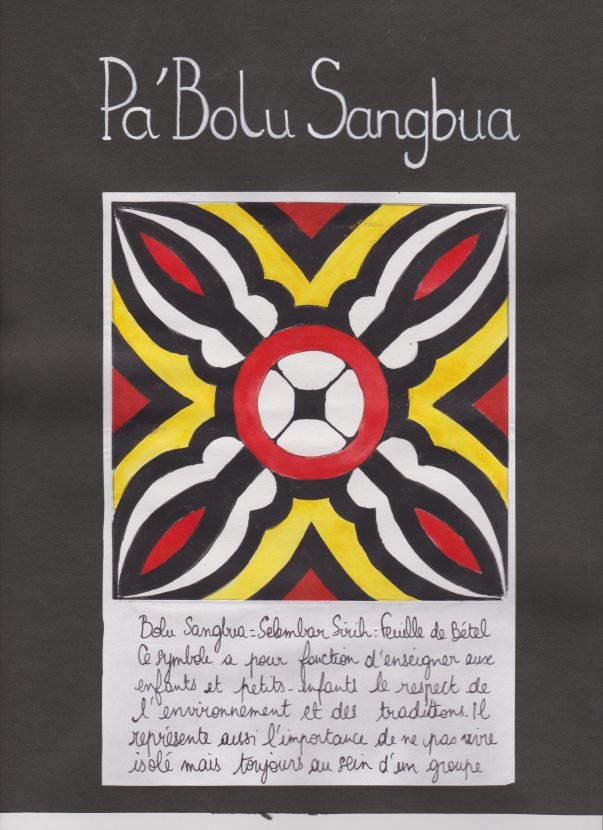 Pa'Bolu Sangbua
Bolu Sangbua = Selembar Sirih = Feuille de Bétel
Ce symbole a pour fonction d'enseigner aux
enfants et petits-enfants le respect de
l'environnement et des traditions. Il
représente aussi l'importance de ne pas vivre
isolé mais toujours au sein d'un groupe